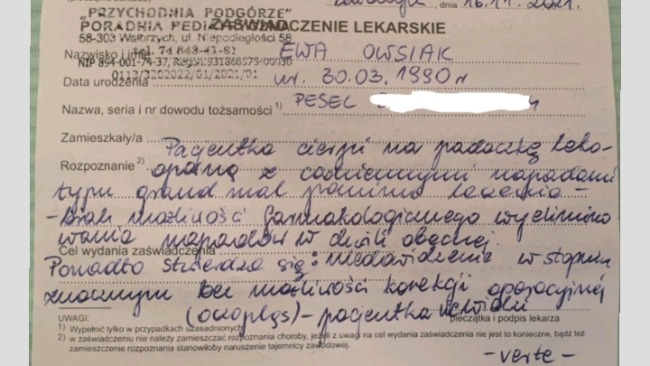 dnia 16.11.2021.
"PRZYCHODNIA PODGÓRZE"
ZAŚWIADCZENIE LEKARSKIE
PORADNIA
58-303 Wałbrzych, ul. Niepodległości 58
Nazwisko i imię EWA OWSIAK
tel. 74 848-41-81
NIP 894-001-74-37,
Data urodzenia ur. 30.03.1990 r
Nazwa, seria i nr dowodu tożsamości 1) PESEL
Zamieszkały/a
Pacjentka cierpi na padaczkę leko-
Rozpoznanie 2)
oporną z codziennymi napadami
typu grand mal pomimo leczenia -
- brak możliwości farmakologicznego wyelimino
wania napadów w chwili obecnej.
Cel wydania zaświadczenia
Ponadto stwierdza się: niedowidzenie w stopniu
znacznym bez możliwości korekcji operacyjnej
(oczopląs) - pacjentka
UWAGI:
pieczątka i podpis lekarza
1) Wypełnić tylko w przypadkach uzasadnionych.
2) w zaświadczeniu nie należy zamieszczać rozpoznania choroby, jeżeli z uwagi na cel wydania zaświadczenia nie jest to konieczne, bądź też
zamieszczenie rozpoznania stanowiłoby naruszenie tajemnicy zawodowej.
- verte -